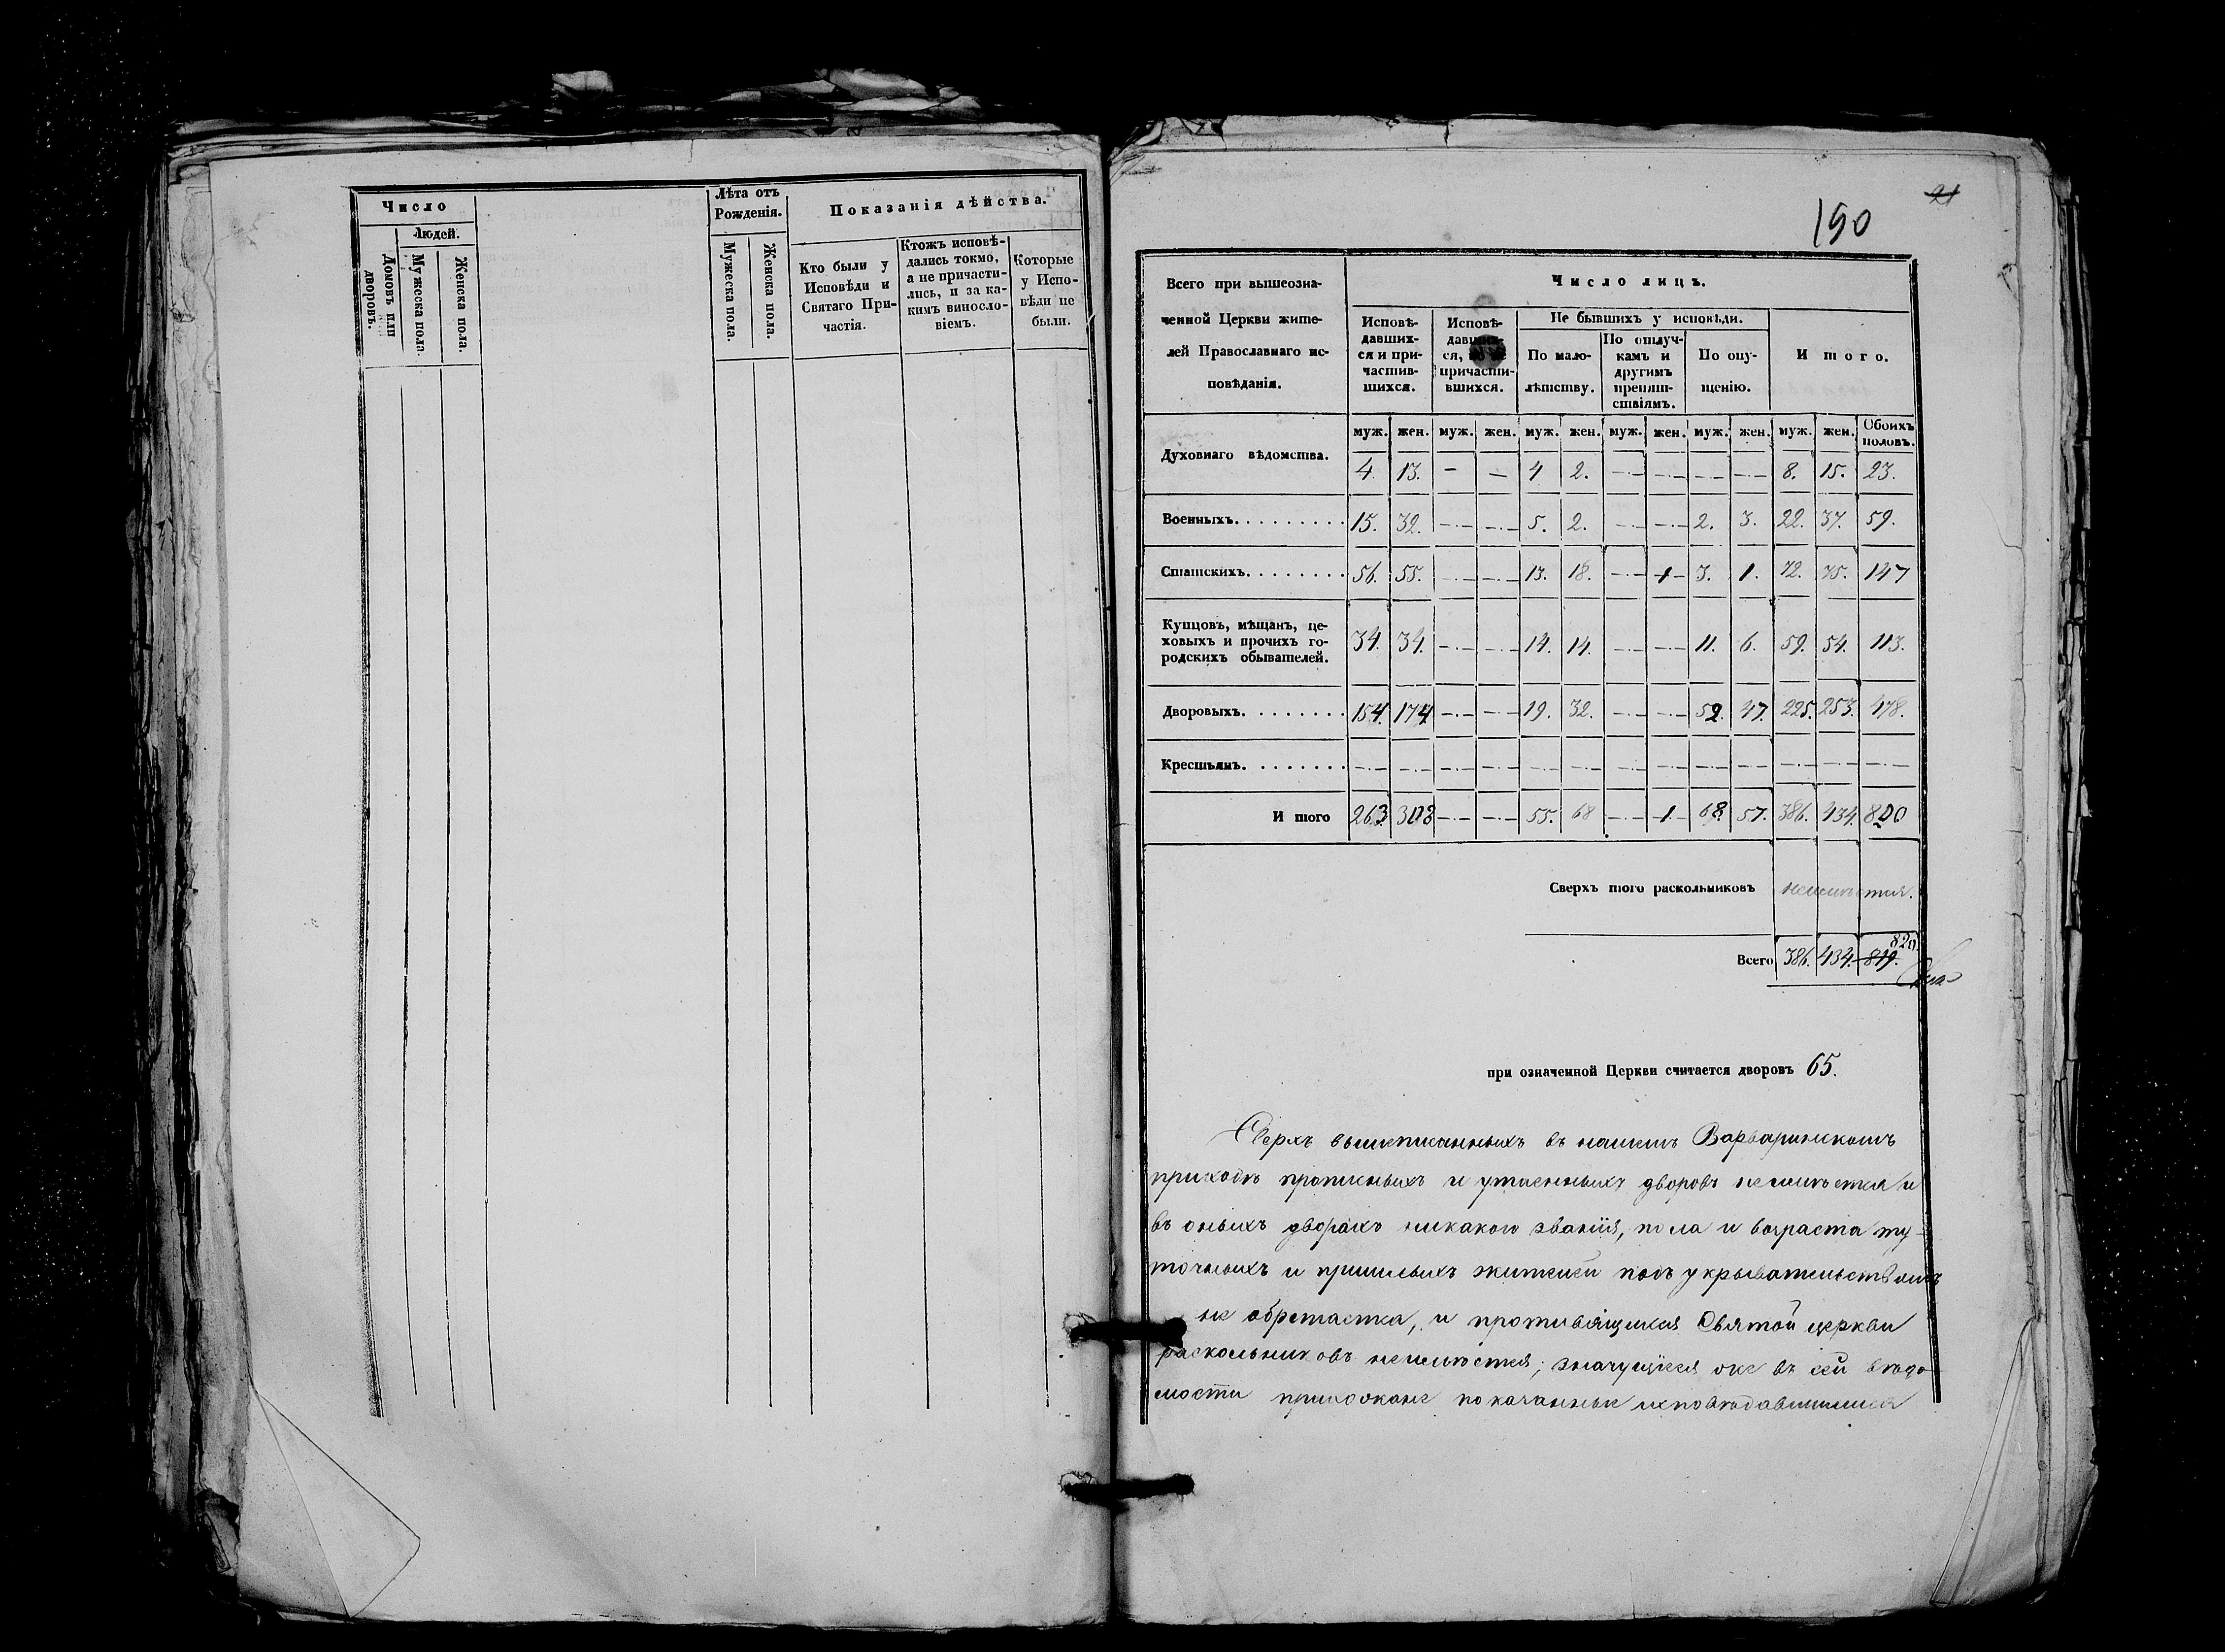 Число
Людей.
Домовъ или дворовъ.
Мужеска пола.
Женска пола.
Лѣта отъ
Рожденія.
Мужеска пола.
Женска пола.
Показанія дѣйства.
Кто были у
Исповѣди и
Святаго При-
частія.
Ктожъ исповѣ-
дались токмо,
а не причасти-
лись, и за ка-
кимъ винослo-
віемъ.
Которые
у Испо-
вѣди не
были.
21
190
Всего при вышеозна-
ченной Церкви жите-
лей Православнаго ис-
повѣданія.
Число лицъ.
Исповѣ-
давших-
ся и при-
частив-
шихся.
Исповѣ-
давших-
ся, но не
причасти-
вшихся.
Не бывшихъ у исповѣди.
По мало-
лѣтству.
По отлуч-
камъ и
другимъ
препят-
ствіямъ.
По опу-
щенію.
Итого.
муж. жен. муж. жен. муж. жен. муж. жен. муж. жен. муж. жен. Обоихъ половъ.
Духовнаго вѣдомства. 4. 13. — — 4 2. — — — — 8. 15. 23.
Военныхъ. 15. 32. — — 5. 2. — — 2. 3. 22. 37. 59.
Статскихъ. 56. 55. — — 13. 18. — 1 3. 1. 72. 75. 147
Купцовъ, мѣщанъ, це-
ховыхъ и прочихъ го-
родскихъ обывателей. 34. 34. — — 14. 14. — — 11. 6. 59. 54. 113.
Дворовыхъ. 154. 174. — — 19. 32. — — 52. 47. 225. 253. 478.
Крестьянъ. — — — — — — — — — — — — —
Итого 263. 308 — — 55. 68 — 1. 68. 57. 386. 434. 820
Сверхъ того раскольниковъ неимѣется.
820
Всего 386. 434. 819.
при означенной Церкви считается дворовъ 65.
Сверхъ вышеписанныхъ въ нашемъ Варваринскомъ
приходѣ прописныхъ и утаенныхъ дворовъ неимѣется и
въ оныхъ дворахъ никакого званія, пола и возраста ту-
точныхъ и пришлыхъ жителей подъ укрывательствомъ
не обретается, и противящихся Святой церкви
раскольниковъ неимѣется; значущіеся же въ сей вѣдо-
мости прихожане показанные исповѣдавшимися